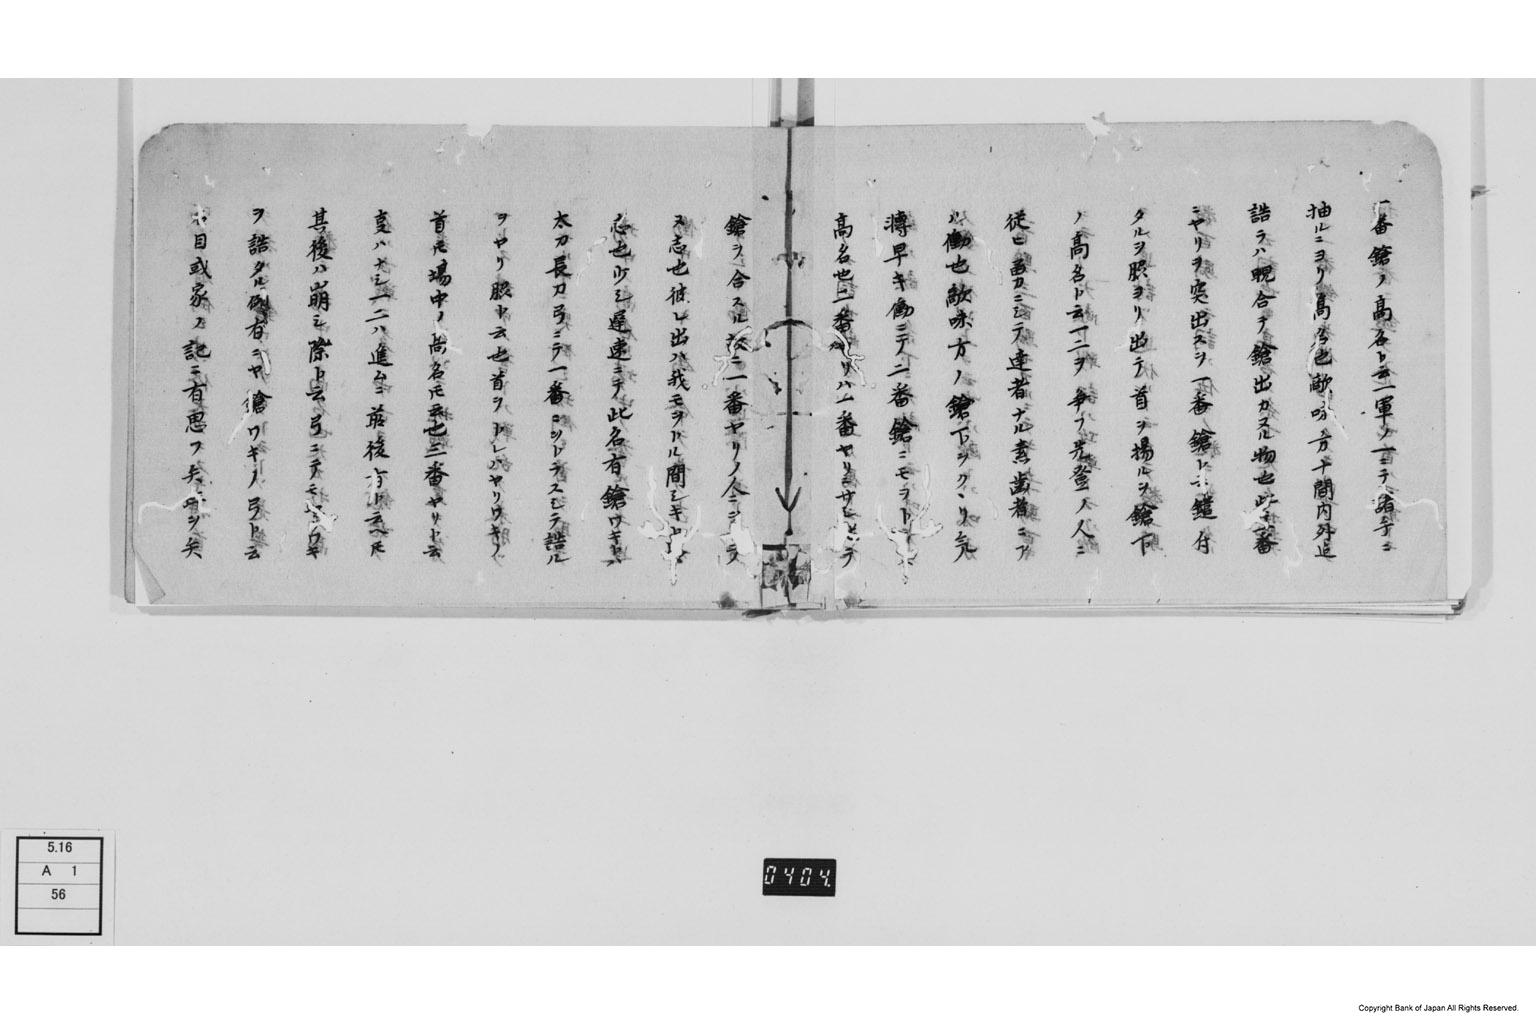 一番鎗ノ高名ト云一軍ノ一ニテ諸手ニ
抽ルニヨリ高名也敵味方十間内外追
詰ラハ睨合テ鎗出カヌル物也此時一番
ニヤリヲ突出スヲ一番鎗ト云鑓付
タルヲ脇ヨリ出テ首ヲ揚ルヲ鎗下
ノ高名ト云一二ヲ争フ先登ノ人ニ
従ヒ勇カニシテ達者ナル素歯者ニア
ル働也敵味方ノ鎗下ヲクヽリ気
早キ働ニテ二番鎗ニモヲトラヌ
高名也二番ヤリハ一番ヤリニサヒヒテ
鎗ヲ合スル故ニ一番ヤリノ人ニヲトラ
ヌ志也彼レ出ハ我モヲトル間シキト云
志也少シ遅速ニテ此名有鎗ワキトハ
太刀長刀弓ニテ一番ニツトヲスシテ詰ル
ヲヤリ脇ト云也首ヲトレハヤリワキノ
首トモ場中ノ高名トモ云也三番ヤリト云
事ハナシ一二ハ進ム前後有ト云ヘトモ
其後ハ崩シ際ト云弓ニテモヤリワキ
ヲ詰タル例有ニヤ鎗ワキノ弓ト云
名目或家ノ記ニ有思フ矢坪ヲ矢
5.16
A 1
56
0404.
Copyright Bank of Japan All Rights Reserved.